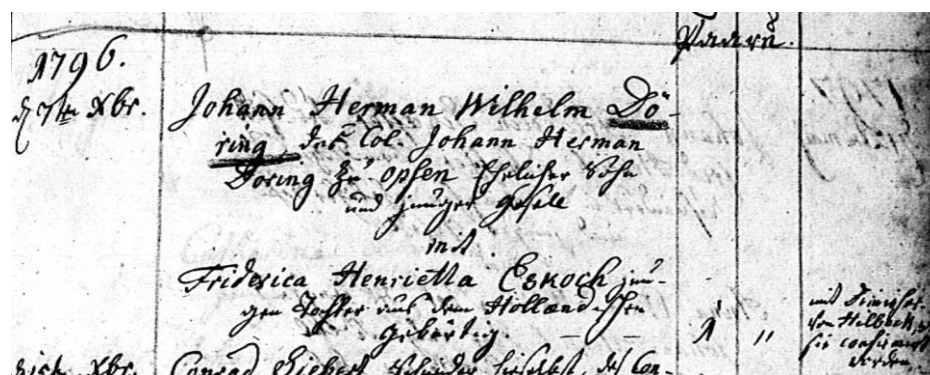 Paaru.
1796.
d 7ten Xbr. Johann Herman Wilhelm Dö-
ring des Col. Johann Herman
Döring zu Opsen Ehelicher Sohn
und junger Gesell
mit
Friderica Henrietta Eskoch jun-
gen Tochter aus dem Holländischen
gebürtig. 1 "
mit
von
sie confirmirt
worden
Xbr. Conrad Siebert hieselbst, des Con-